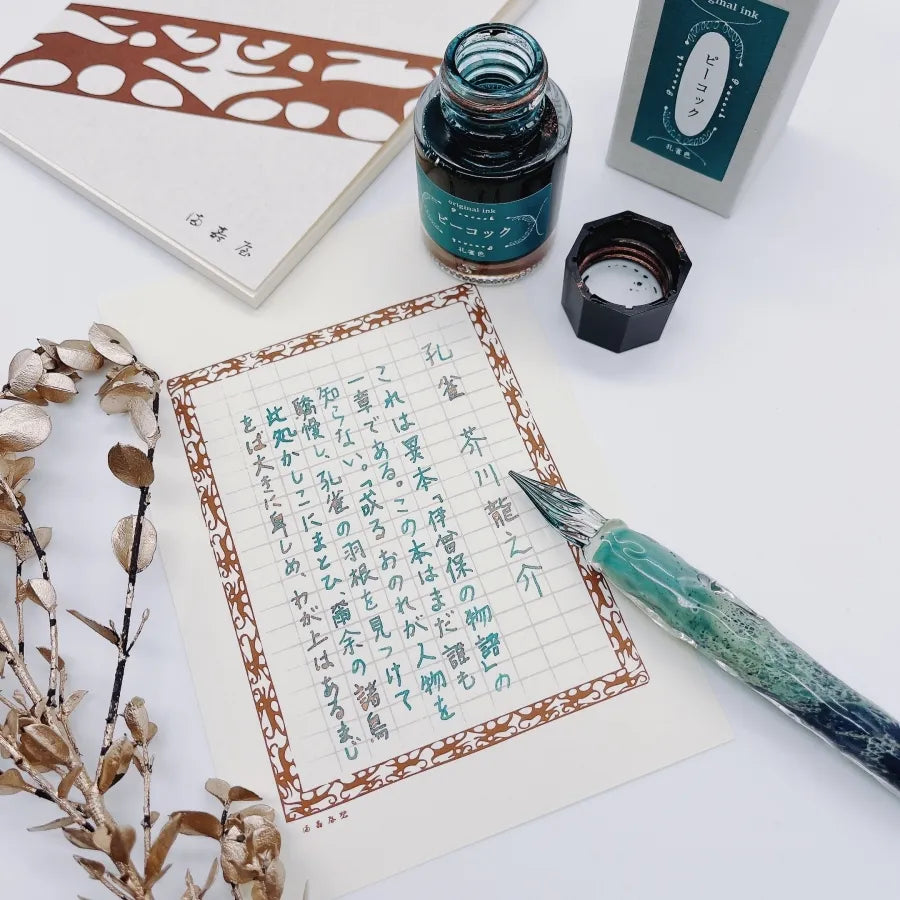 満寿屋
original ink
ピーコック
孔雀色
iginal ink
Peacock
ピーコック
Peacock
孔雀色
孔雀 芥川龍之介
これは異本「伊曾保の物語」の
一章である。この本はまだ誰も
知らない。「或るおのれが人物を
驕慢し、孔雀の羽根を見つけて
此処かしこにまとひ、爾余の諸鳥
をば大きに卑しめ、わが上はあるまじ
満寿屋